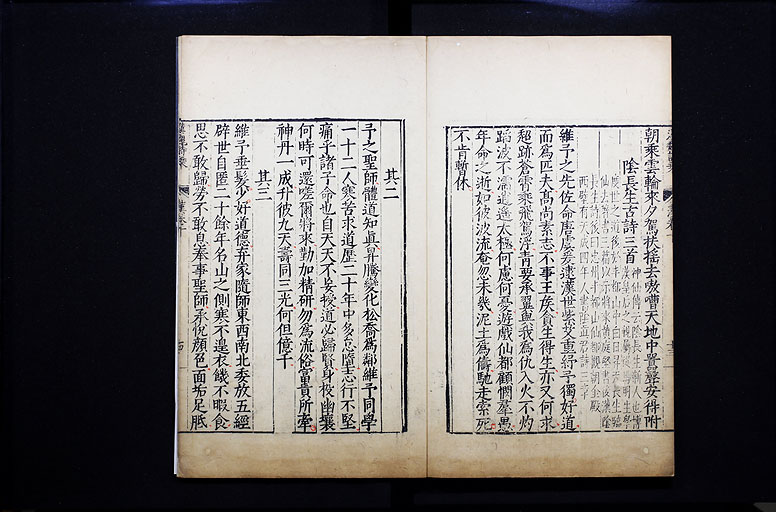 朝乘雲輪來夕駕扶搖去嗷嘈天地中囂聲安得附
陰長生古詩三首
維予之先佐命唐虞爰逮漢世紫艾重紆予獨好道
而爲匹夫高尚素志不事王矦貪生得生亦又何求
超跡蒼霄乘飛駕浮青要承翼與我爲仇入火不灼
蹈波不濡逍遥太極何慮何憂遊戲仙都顧憫羣愚
年命之逝如彼波流奄忽未幾泥土爲儔馳走索死
不肯暫休
其二
予之聖師體道如眞昇騰變化松喬爲鄰維予同學
一十二人寒苦求道歷二十年中多怠墮志行不堅
痛乎諸子命也自天天不妄授道必歸賢身投幽壤
何時可還嗟爾將來勤加精研勿爲流俗富貴所牽
神丹一成升彼九天壽同三光何但億千
其三
維予垂髮少好道德弃家隨師東西南北委放五經
辟世自匿二十餘年名山之側寒不遑衣饑不暇食
思不敢歸勞不敢息奉事聖師承恱顔色面垢足胝